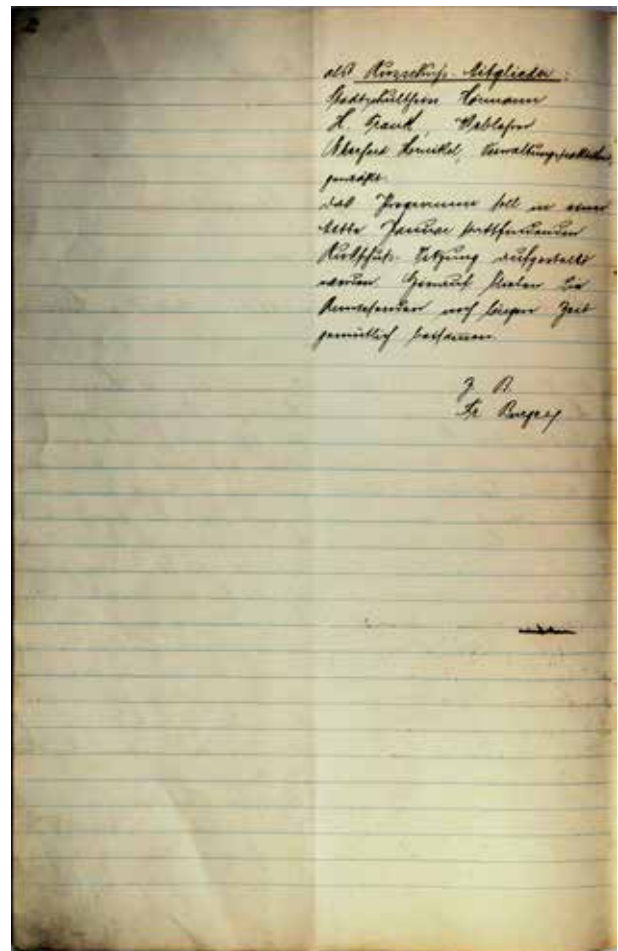 2
als Ausschuss-Mitglieder:
Stadtschultheiss Hörmann
H. Frank, Weblehrer
Eberhard Hornikel, Verwaltungspraktikant,
gewählt.
Das Programm soll in einer
Mitte Januar stattfindenden
Ausschuss-Sitzung aufgestellt
werden. Hierauf blieben die
Anwesenden noch längere Zeit
gemütlich beisammen.
Z. B.